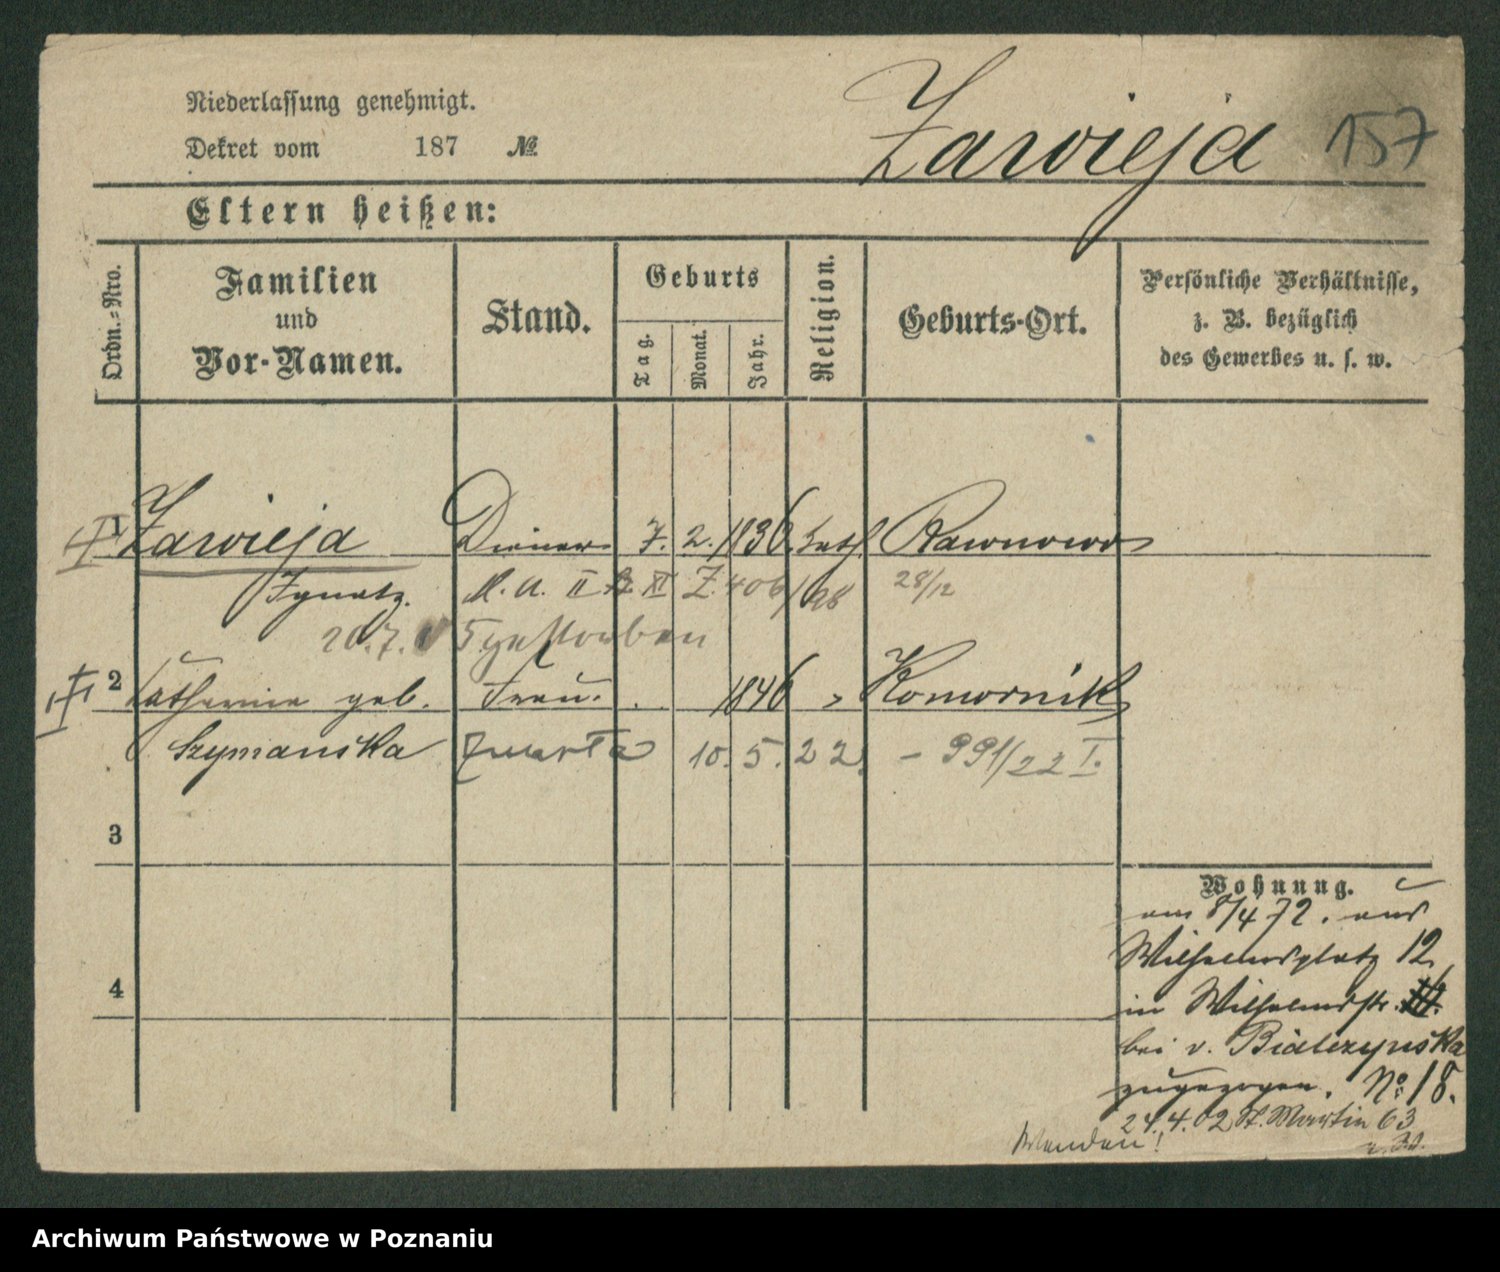 Niederlassung genehmigt.
Dekret vom 187 №
Zawieja 157
Eltern heißen:
Ordn.-Nro.
Familien
und
Vor-Namen.
Stand.
Geburts
Tag.
Monat.
Jahr.
Religion.
Geburts-Ort.
Persönliche Verhältnisse,
z. B. bezüglich
des Gewerbes u. s. w.
1 Zawieja Diener 7. 2. 1836. kath. Rawnowo
Ignatz. 406/98 28/12
20.7. 5 gestorben
2 Catharina geb. Frau. 1846 Komornik
Szymanska 10. 5. 22. – 991/22 I.
3
4
Wohnung.
am 8/4 72. aus
Wilhelmsplatz 12
in Wilhelmstr.
bei v. Bialczynska
zugezogen. No: 18.
24.4.02 St. Martin 63
Wenden!
Archiwum Państwowe w Poznaniu